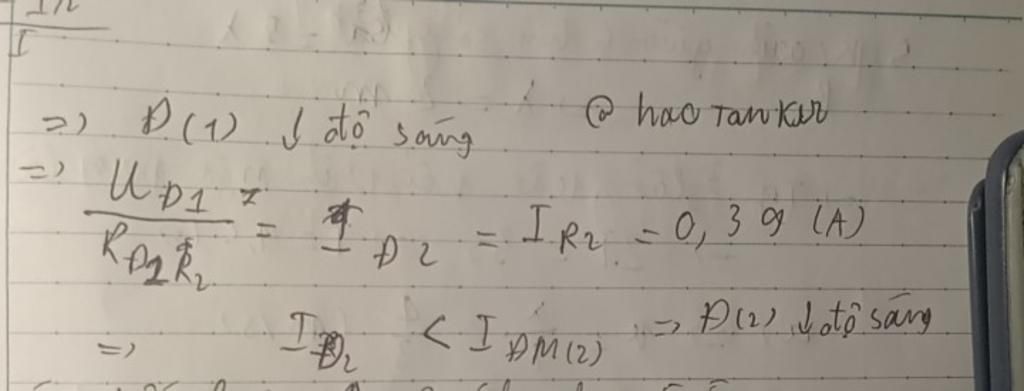 I
=> Đ(1) ↓ độ sáng @ haoTanKur
=> U_Đ1 / R_Đ2R_2 = I_Đ2 = I_R2 = 0,39 (A)
=> I_Đ2 < I_ĐM(2) => Đ(2) ↓ độ sáng